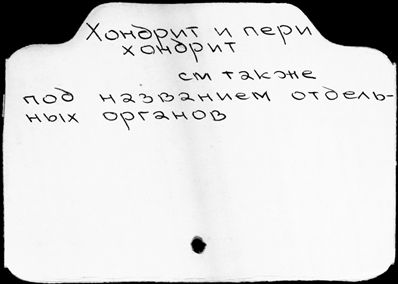 Хондрит и пери
хондрит
см также
под названием отдель-
ных органов